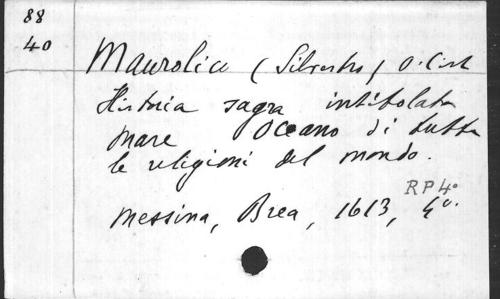 88
40
Maurolico (Silvestro) O. Cist
Historia sagra intitolata
Mare Oceano di tutte
le religioni del mondo.
RP4°
Messina, Brea, 1613, 4°.